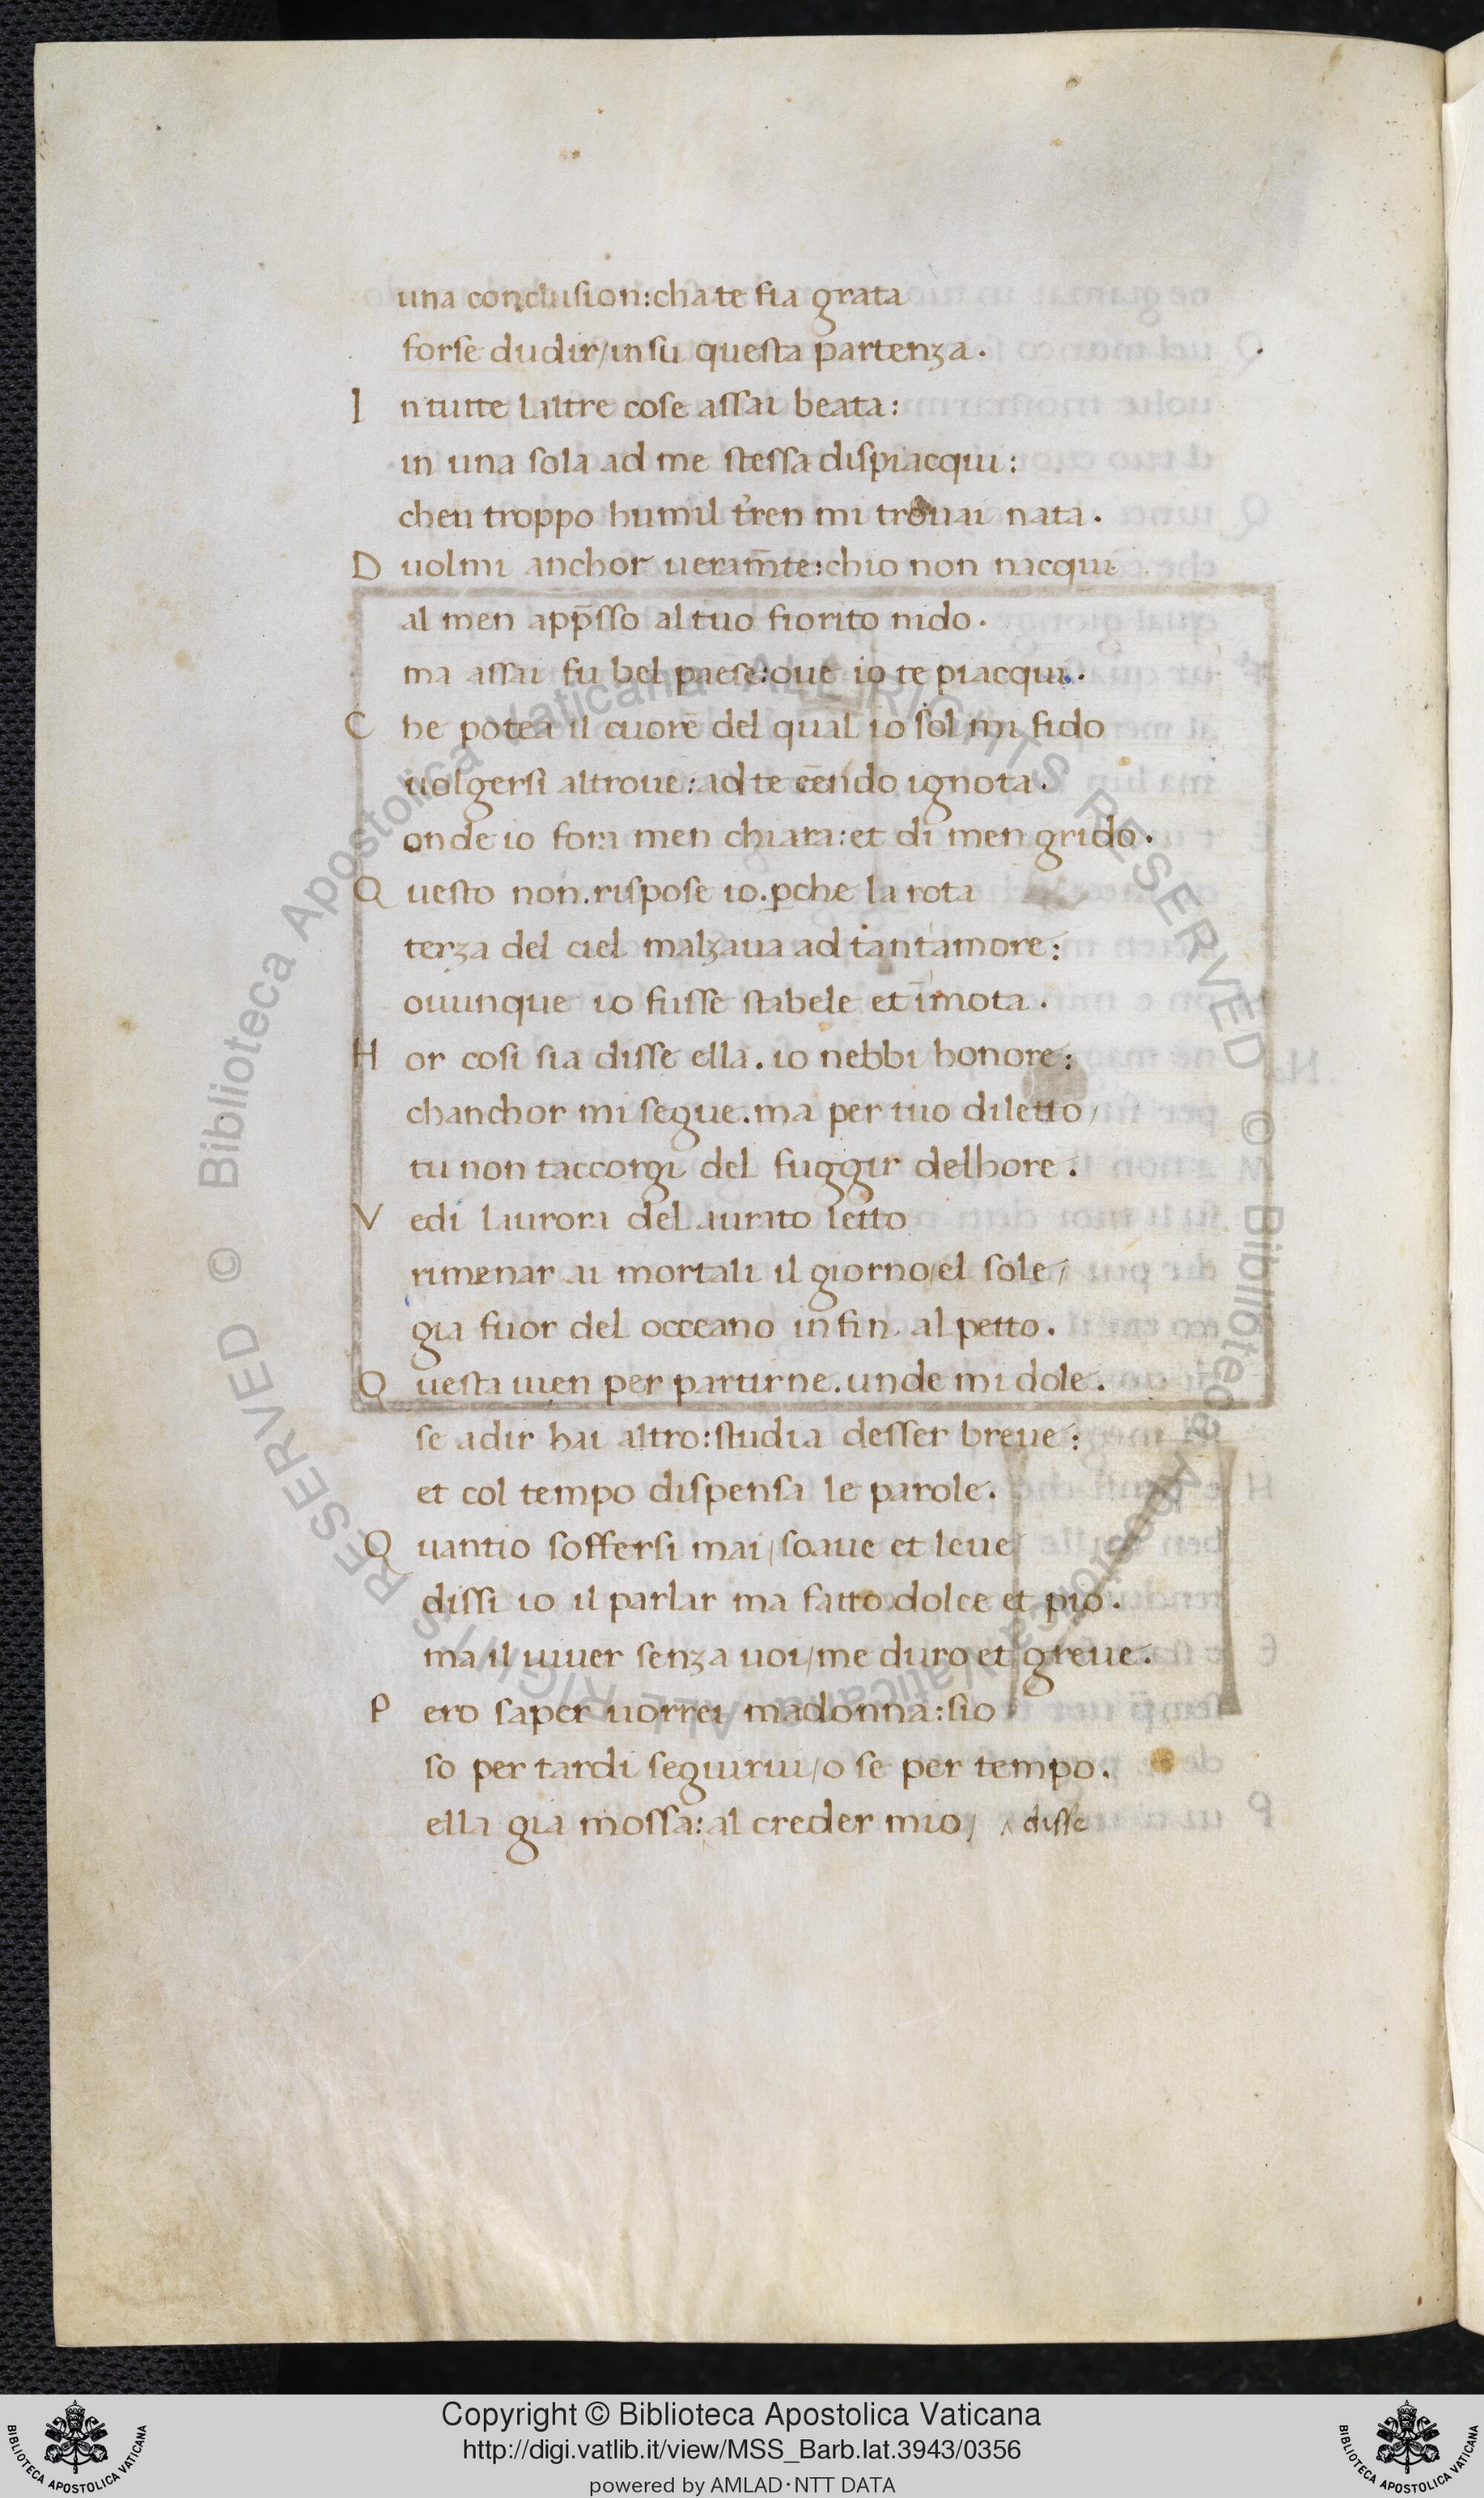 una conclusion:cha te fia grata
forse dudir/in su questa partenza.
I n tutte laltre cose assai beata:
in una sola ad me stessa dispiacqui:
chen troppo humil t̃ren mi trouai nata.
D uolmi anchor ueram̃te:chio non nacqui
al men app̃sso al tuo fiorito nido.
ma assai fu bel paese:oue io te piacqui.
C he potea il cuore del qual io sol mi fido
uolgersi altroue:ad te eẽndo ignota.
onde io fora men chiara:et di men grido.
Q uesto non.rispose io.ꝑche la rota
terza del ciel malzaua ad tantamore:
ouunque io fusse stabele et ĩmota.
H or cosi sia disse ella.io nebbi honore:
chanchor mi segue.ma per tuo diletto/
tu non taccorgi del fuggir delhore.
V edi laurora del aurato letto
rimenar ai mortali il giorno/el sole/
gia fuor del occeano in fin al petto.
Q uesta uien per partirne.unde mi dole.
se adir hai altro:studia desser breue:
et col tempo dispensa le parole.
Q uantio soffersi mai/soaue et leue
dissi io il parlar ma fatto dolce et pio.
ma il uiuer senza uoi/me duro et greue.
P ero saper uorrei madonna:sio
so per tardi seguirui/o se per tempo.
ella gia mossa:al creder mio/ ‸ disse
Copyright © Biblioteca Apostolica Vaticana
http://digi.vatlib.it/view/MSS_Barb.lat.3943/0356
powered by AMLAD·NTT DATA
BIBLIOTECA APOSTOLICA VATICANA
BIBLIOTECA APOSTOLICA VATICANA
© Biblioteca Apostolica Vaticana ALL RIGHTS RESERVED © Biblioteca Apostolica Vaticana ALL RIGHTS RESERVED